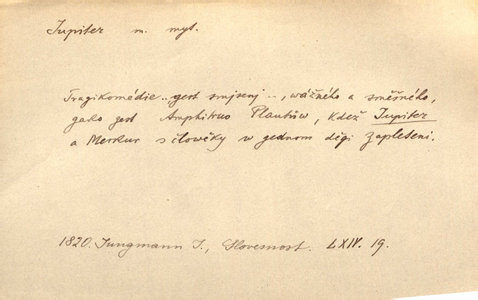 Jupiter m. myt.
Tragikomédie .. gest smjsenj .., wážného a směšného,
gako gest Amphitruo Plautůw, kdež Jupiter
a Merkur s člowěky w gednom děgi zapleteni.
1820. Jungmann J., Slovesnost. LXIV. 19.